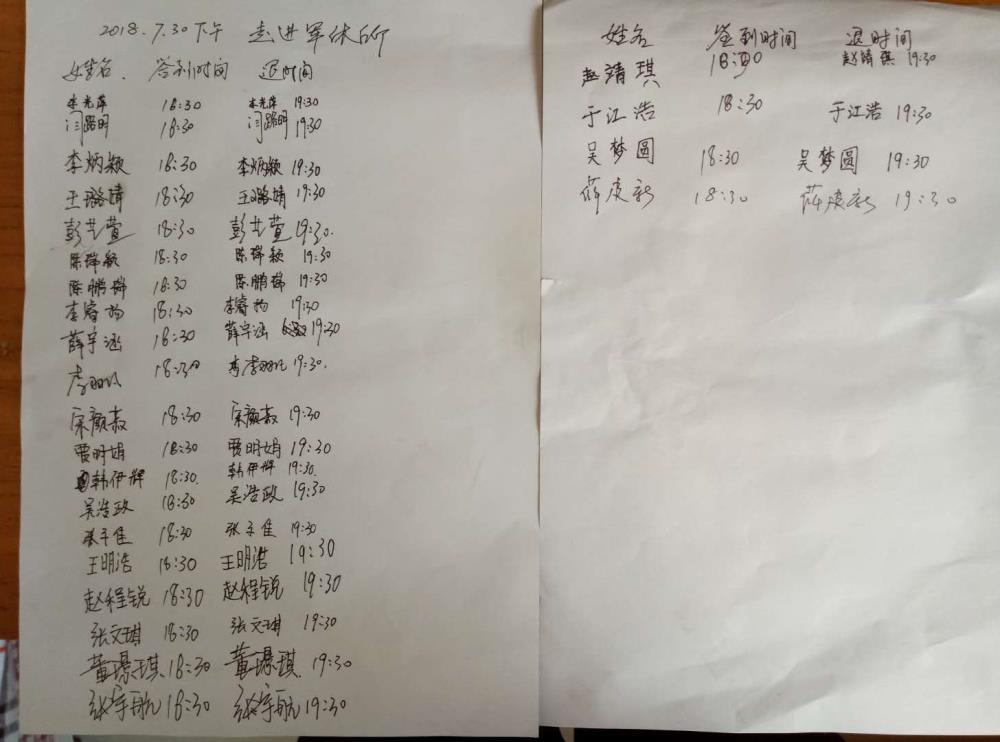 2018.7.30下午 走进军休所
姓名. 签到时间 退时间
18:30 19:30
闫璐明 18:30 闫璐明 19:30
李炳颖 18:30 李炳颖 19:30
王璐婧 18:30 王璐婧 19:30
彭芷萱 18:30 彭芷萱 19:30.
陈瑞颖 18:30 陈瑞颖 19:30
陈鹏瑞 18:30 陈鹏瑞 19:30
李睿扬 18:30 李睿扬 19:30
薛宇涵 18:30 薛宇涵 19:30
18:30 19:30.
宋颜赦 18:30 宋颜赦 19:30
贾明娟 18:30 贾明娟 19:30
韩伊辉 18:30. 韩伊辉 19:30.
吴浩政 18:30 吴浩政 19:30
张子佳 18:30 张子佳 19:30
王明浩 18:30 王明浩 19:30
赵程锐 18:30 赵程锐 19:30
张文琪 18:30 张文琪 19:30
董璟琪 18:30 董璟琪 19:30
张宇航 18:30 张宇航 19:30
姓名 签到时间 退时间
赵靖琪 18:30 赵靖琪 19:30
于江浩 18:30 于江浩 19:30
吴梦圆 18:30 吴梦圆 19:30
薛庆新 18:30 薛庆新 19:30